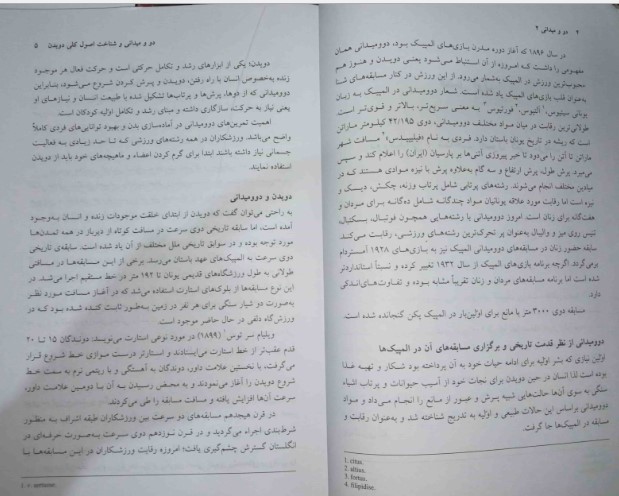 ۴ دو و میدانی ۲
در سال ۱۸۹۶ که آغاز دوره مدرن بازی‌های المپیک بود، دوومیدانی همان
مفهومی را داشت که امروزه از آن استنباط می‌شود یعنی دویدن و هنوز هم
محبوب‌ترین ورزش در المپیک به‌شمار می‌رود. از این ورزش در کنار مسابقه‌های شنا
به‌عنوان قلب بازی‌های المپیک یاد شده است. شعار دوومیدانی در المپیک به زبان
یونانی سیتیوس،۱ آلتیوس،۲ فورتیوس۳ به معنی سریع‌تر، بالاتر و قوی‌تر است
طولانی‌ترین رقابت در میان مواد مختلف دوومیدانی، دوی ۴۲/۱۹۵ کیلومتر ماراتن
است که ریشه در تاریخ یونان باستان دارد. فردی به نام «فیلیپیدس»۴ مسافت شهر
ماراتن تا آتن را می‌دود تا خبر پیروزی آتنی‌ها بر پارسیان (ایران) را اعلام کند و سپس
می‌میرد. پرش طول، پرش ارتفاع و سه گام به‌علاوه پرش با نیزه موادی هستند که در
میادین مختلف انجام می‌شوند. رشته‌های پرتابی شامل پرتاب وزنه، چکش، دیسک و
نیزه است اما رقابت مورد علاقه یونانیان مواد چندگانه شامل ده‌گانه برای مردان و
هفت‌گانه برای زنان است. امروز دوومیدانی با رشته‌هایی همچون فوتبال، بسکتبال،
تنیس روی میز و والیبال به‌عنوان پر تحرک‌ترین رشته‌های ورزشی، رقابت می‌کند.
سابقه حضور زنان در مسابقه‌های دوومیدانی المپیک نیز به بازی‌های ۱۹۲۸ آمستردام
برمی‌گردد. اگرچه برنامه بازی‌های المپیک از سال ۱۹۳۲ تغییر کرده و نسبتاً استانداردتر
شده است اما برنامه مسابقه‌های مردان و زنان تقریباً مشابه بوده و تفاوت‌های اندکی
دارد.
مسابقه دوی ۳۰۰۰ متر با مانع برای اولین‌بار در المپیک پکن گنجانده شده است.
دوومیدانی از نظر قدمت تاریخی و برگزاری مسابقه‌های آن در المپیک‌ها
اولین نیازی که بشر اولیه برای ادامه حیات خود به آن پرداخته بود شکار و تهیه غذا
بوده است لذا انسان در حین دویدن برای نجات خود از آسیب حیوانات و پرتاب اشیاء
سنگی به سوی آن‌ها حالت‌هایی شبیه پرش و عبور از مانع را انجام می‌داد و مواد
دوومیدانی براساس این حالات طبیعی و اولیه به تدریج شناخته شد و به‌عنوان رقابت و
مسابقه در المپیک‌ها جا گرفت.
1. citus.
2. altius.
3. fortus.
4. filipidise.
دو و میدانی و شناخت اصول کلی دویدن ۵
دویدن؛ یکی از ابزارهای رشد و تکامل حرکتی است و حرکت فعال هر موجود
زنده به‌خصوص انسان با راه رفتن، دویدن و پرش کردن شروع می‌شود، بنابراین
دوومیدانی که از دوها، پرش‌ها و پرتاب‌ها تشکیل شده با طبیعت انسان و نیازهای او
یعنی نیاز به حرکت، سازگاری داشته و مبنای رشد و تکامل اولیه کودکان است.
اهمیت تمرین‌های دوومیدانی در آماده‌سازی بدن و بهبود توانایی‌های فردی کاملاً
واضح می‌باشد. ورزشکاران در همه رشته‌های ورزشی که تا حد زیادی به فعالیت
جسمانی نیاز داشته باشند ابتدا برای گرم کردن اعضاء و ماهیچه‌های خود باید از دویدن
استفاده نمایند.
دویدن و دوومیدانی
به راحتی می‌توان گفت که دویدن از ابتدای خلقت موجودات زنده و انسان به‌وجود
آمده است، اما سابقه تاریخی دوی سرعت در مسافت کوتاه از دیرباز در همه تمدن‌ها
مورد توجه بوده و در سوابق تاریخی ملل مختلف از آن یاد شده است. سابقه‌ی تاریخی
دوی سرعت به المپیک‌های عهد باستان می‌رسد. برخی از این مسابقه‌ها در مسافتی
طولانی به طول ورزشگاه‌های قدیمی یونان تا ۱۹۲ متر در خط مستقیم اجرا می‌شد. در
این نوع مسابقه‌ها از بلوک‌های استارت استفاده می‌شد که در آغاز مسافت مورد نظر
به‌صورت دو شیار سنگی برای هر نفر در زمین به‌طور ثابت کنده شده بود که در
ورزش‌گاه دلفی در حال حاضر موجود است.
ویلیام سر توس۱ (۱۸۹۹) در مورد نوعی استارت می‌نویسد: دوندگان ۱۵ تا ۲۰
قدم عقب‌تر از خط استارت می‌ایستادند و استارتر درست موازی خط شروع قرار
می‌گرفت، با نخستین علامت داور، دوندگان به آهستگی و با ریتمی نرم به سمت خط
شروع دویدن را آغاز می‌نمودند و به محض رسیدن به آن با دومین علامت داور،
سرعت آن‌ها افزایش یافته و مسافت مسابقه را طی می‌کردند.
در قرن هیجدهم مسابقه‌های دو سرعت بین ورزشکاران طبقه اشراف به منظور
شرط‌بندی اجراء می‌گردید و در قرن نوزدهم دوی سرعت به‌صورت حرفه‌ای در
انگلستان گسترش چشم‌گیری یافت؛ امروزه رقابت ورزشکاران در این مسابقه‌ها با